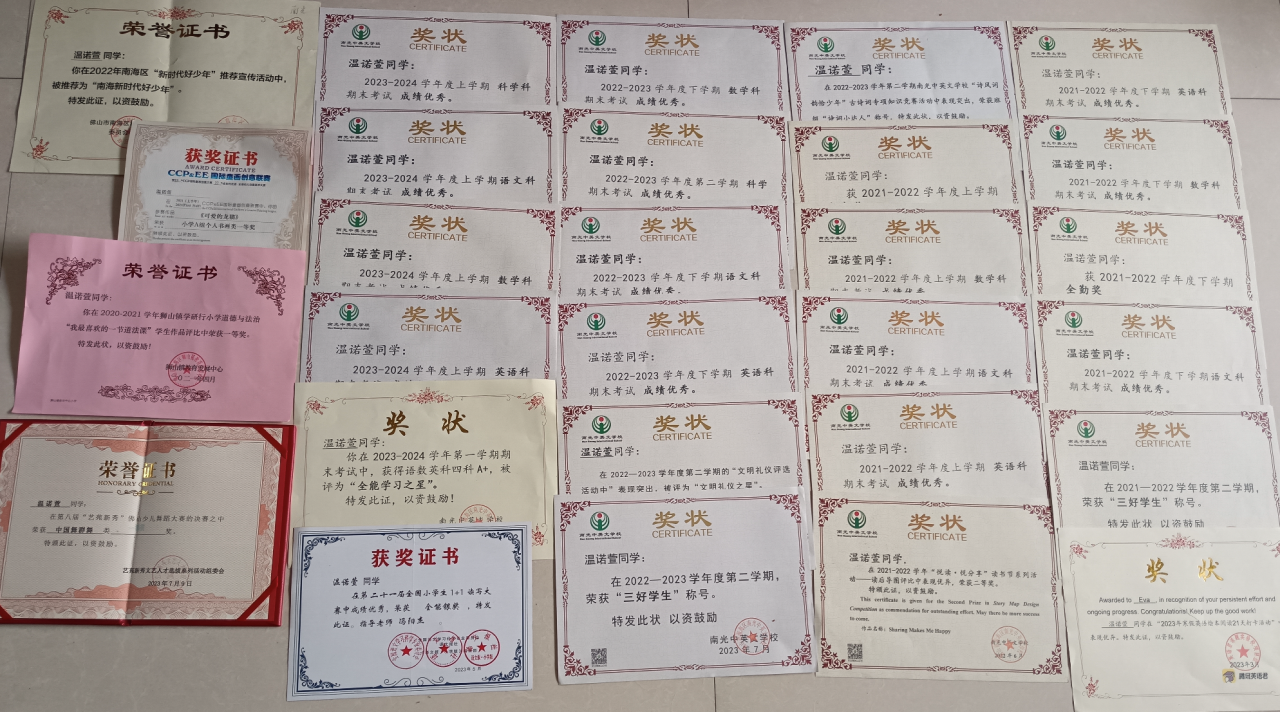 荣誉证书
温诺萱 同学:
你在2022年南海区“新时代好少年”推荐宣传活动中,
被推荐为“南海新时代好少年”。
特发此证,以资鼓励。
获奖证书
AWARD CERTIFICATE
CCP&EE 国际
《可爱的龙猫》
小学A组个人书画类一等奖
荣誉证书
温诺萱同学:
你在 2020-2021 学年狮山镇学研行小学道德与法治
“我最喜欢的一节道法课”学生作品评比中荣获一等奖。
特发此状,以资鼓励!
荣誉证书
HONORARY CREDENTIAL
温诺萱 同学:
在第八届“艺苑新秀”佛山少儿舞蹈大赛的决赛之中
荣获 中国舞群舞 类 奖。
特颁此证,以资鼓励。
艺苑新秀文艺人才选拔系列活动组委会
2023年7月9日
南光中英文学校
奖状
CERTIFICATE
温诺萱同学:
2023-2024 学年度上学期 科学科
期末考试 成绩优秀。
南光中英文学校
奖状
温诺萱同学:
2023-2024 学年度上学期语文科
期末考试 成绩优秀。
南光中英文学校
奖状
CERTIFICATE
温诺萱同学:
2023-2024 学年度上学期 数学科
期末考试 成绩优秀。
南光中英文学校
奖状
CERTIFICATE
温诺萱同学:
2023-2024 学年度上学期 英语科
奖状
温诺萱同学:
你在 2023-2024 学年第一学期期
末考试中,获得语数英科四科A+,被
评为“全能学习之星”。
特发此证,以资鼓励!
获奖证书
温诺萱 同学
在第二十一届全国小学生1+1读写大
赛中成绩优秀,荣获 全能银奖,特发
此证。指导老师 冯阳杰
南光中英文学校
奖状
CERTIFICATE
温诺萱同学:
2022-2023 学年度下学期 数学科
期末考试 成绩优秀。
南光中英文学校
奖状
CERTIFICATE
温诺萱同学:
2022-2023 学年度第二学期 科学
期末考试 成绩优秀。
南光中英文学校
奖状
CERTIFICATE
温诺萱同学:
2022-2023 学年度下学期语文科
期末考试 成绩优秀。
南光中英文学校
奖状
CERTIFICATE
温诺萱同学:
2022-2023 学年度下学期 英语科
期末考试 成绩优秀。
南光中英文学校
奖状
CERTIFICATE
温诺萱同学:
在 2022—2023学年度第二学期的“文明礼仪评选
活动中”表现突出,被评为“文明礼仪之星”。
南光中英文学校
奖状
CERTIFICATE
温诺萱同学:
在 2022—2023学年度第二学期,
荣获“三好学生”称号。
特发此状 以资鼓励
南光中英文学校
2023年7月
南光中英文学校
奖状
CERTIFICATE
温诺萱 同学:
在 2022-2023 学年第二学期南光中英文学校“诗风词
韵恰少年”古诗词专项知识竞赛活动中表现突出,荣获班
级“诗词小达人”称号。特发此状,以资鼓励。
奖状
CERTIFICATE
温诺萱同学:
获 2021-2022 学年度上学期
南光中英文学校
奖状
CERTIFICATE
温诺萱同学:
2021-2022 学年度上学期 数学科
期末考试 成绩优秀
南光中英文学校
奖状
CERTIFICATE
温诺萱同学:
2021-2022 学年度上学期语文科
南光中英文学校
奖状
CERTIFICATE
温诺萱同学:
2021-2022 学年度上学期 英语科
期末考试 成绩优秀。
南光中英文学校
奖状
CERTIFICATE
温诺萱同学,
在 2021-2022 学年“悦读·悦分享”读书节系列活
动——读后导图评比中表现优异,荣获二等奖。
特颁此证,以资鼓励。
This certificate is given for the Second Prize in Story Map Design
Competition as commendation for outstanding effort. May there be more success
to come.
作品名称:Sharing Makes Me Happy
2022年6月
南光中英文学校
奖状
CERTIFICATE
温诺萱同学:
2021-2022 学年度下学期 英语科
期末考试 成绩优秀。
南光中英文学校
奖状
CERTIFICATE
温诺萱同学:
2021-2022 学年度下学期 数学科
期末考试 成绩优秀。
南光中英文学校
奖状
CERTIFICATE
温诺萱同学:
获 2021-2022 学年度下学期
全勤奖
南光中英文学校
奖状
CERTIFICATE
温诺萱同学:
2021-2022 学年度下学期语文科
期末考试 成绩优秀。
南光中英文学校
奖状
CERTIFICATE
温诺萱同学:
在 2021—2022 学年度第二学期,
荣获“三好学生”称号。
特发此状 以资鼓励
奖状
Awarded to Eva in recognition of your persistent effort and
ongoing progress. Congratulations! Keep up the good work!
温诺萱 同学在“2023年寒假魔法绘本阅读21天打卡活动”中
表现优异,特发此证,以资鼓励。
2023年3月
腾冠英语君